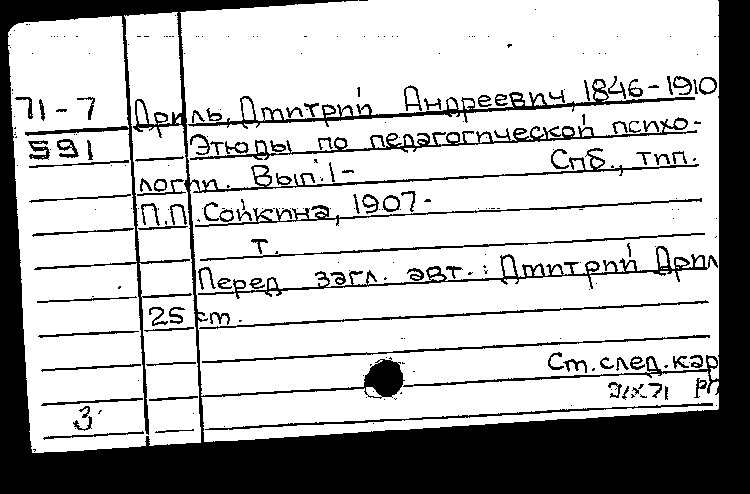 71-7 Дриль, Дмитрий Андреевич, 1846-1910
591 Этюды по педагогической психо-
логии. Вып. 1- Спб., тип.
П.П. Сойкина, 1907-
т.
Перед загл. авт.: Дмитрий Дрил
25 см.
Ст. след. кар
3